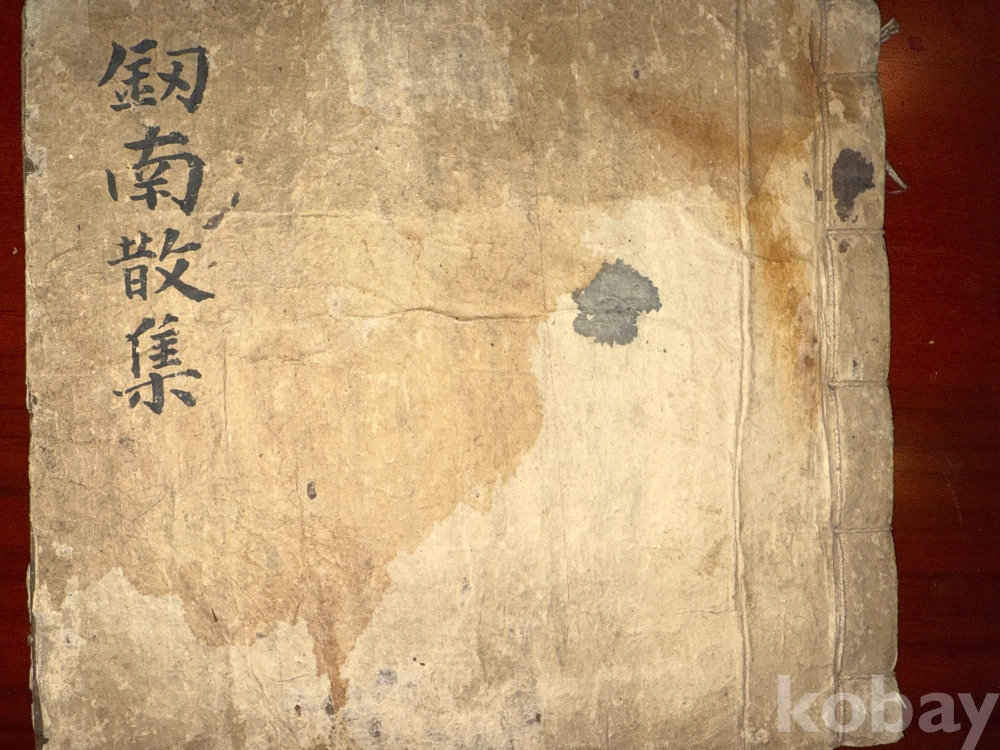 釼南散集
kobay